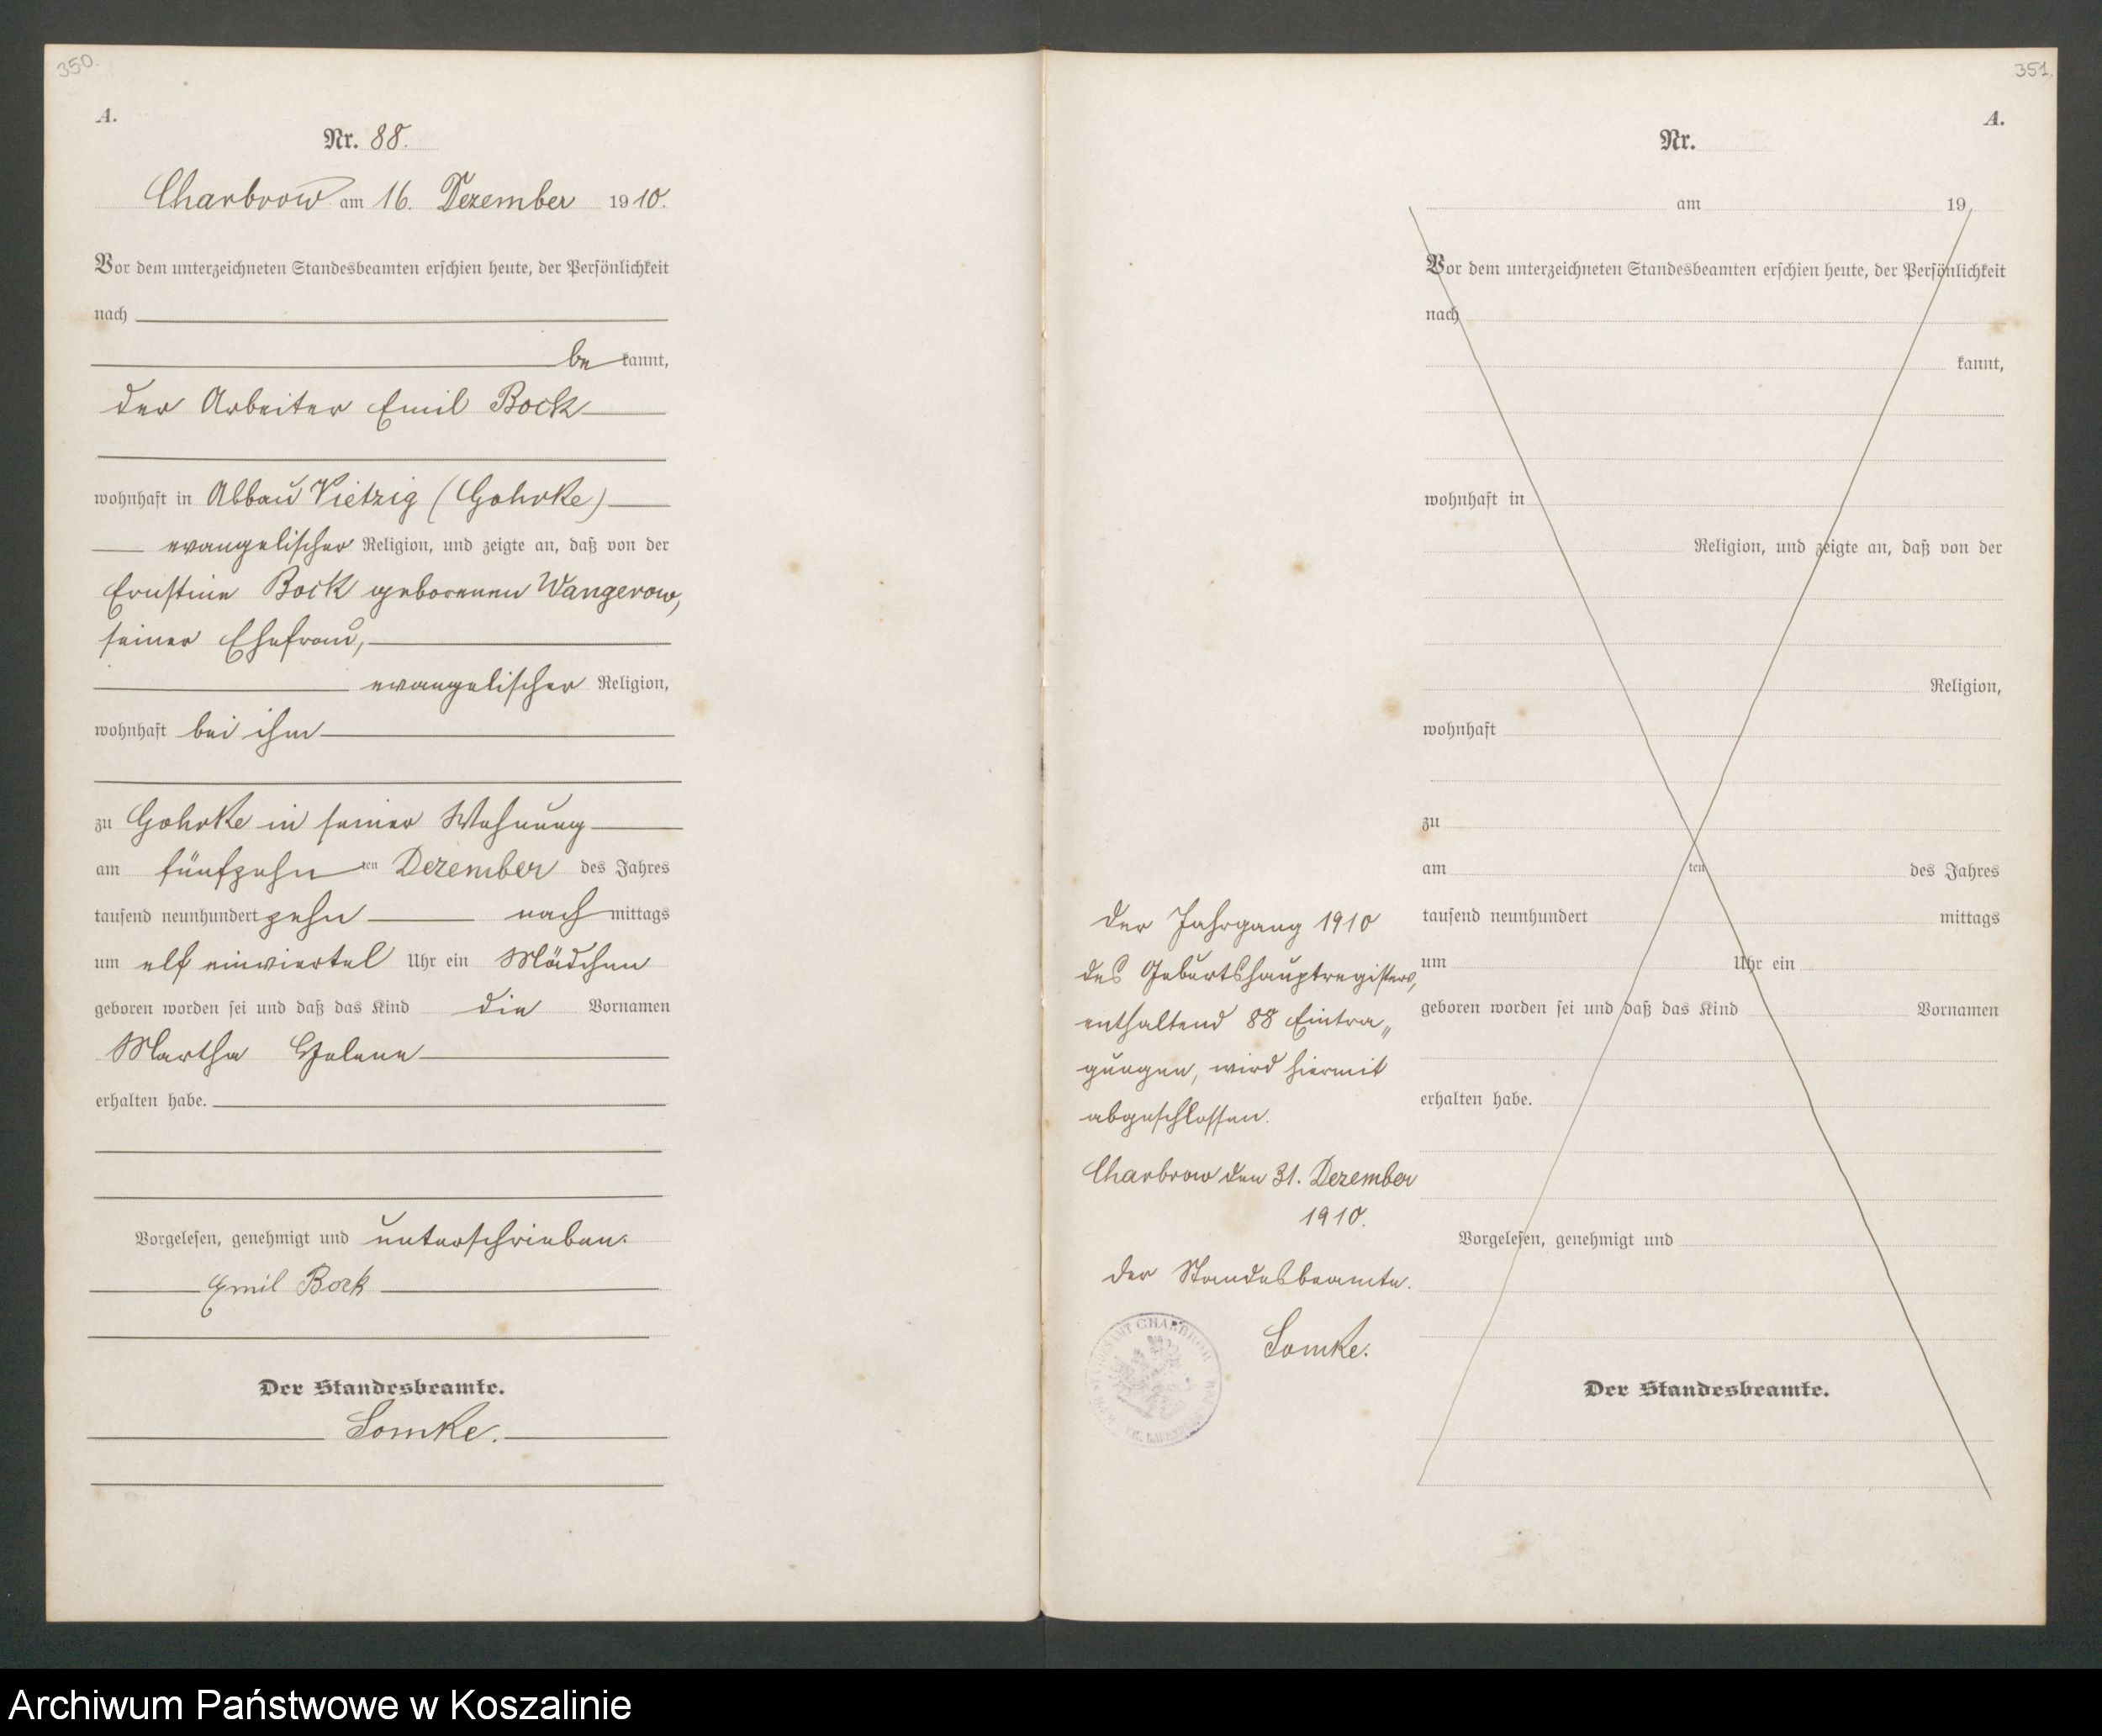 350.
A.
Nr. 88.
Charbrow am 16. Dezember 1910.
Vor dem unterzeichneten Standesbeamten erschien heute, der Persönlichkeit
nach
be kannt,
der Arbeiter Emil Bock
wohnhaft in Abbau Vietzig (Gohrke)
evangelischer Religion, und zeigte an, daß von der
Ernstine Bock geborenen Wangerow,
seiner Ehefrau,
evangelischer Religion,
wohnhaft bei ihm
zu Gohrke in seiner Wohnung
am fünfzehn ten Dezember des Jahres
tausend neunhundert zehn nach mittags
um elf einviertel Uhr ein Mädchen
geboren worden sei und daß das Kind die Vornamen
Martha Helene
erhalten habe.
Vorgelesen, genehmigt und unterschrieben.
Emil Bock
Der Standesbeamte.
Lomke.
351.
A.
Nr.
am 19
Vor dem unterzeichneten Standesbeamten erschien heute, der Persönlichkeit
nach
kannt,
wohnhaft in
Religion, und zeigte an, daß von der
Religion,
wohnhaft
zu
am ten des Jahres
tausend neunhundert mittags
um Uhr ein
geboren worden sei und daß das Kind Vornamen
erhalten habe.
Vorgelesen, genehmigt und
Der Standesbeamte.
Der Jahrgang 1910
des Geburtshauptregisters,
enthaltend 88 Eintra„
gungen, wird hiermit
abgeschlossen.
Charbrow den 31. Dezember
1910.
Der Standesbeamte.
Lomke.
Archiwum Państwowe w Koszalinie